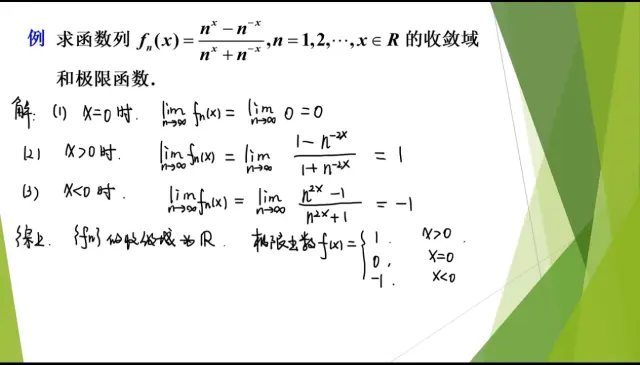 例 求函数列 fₙ(x) = (n^x − n^{−x})/(n^x + n^{−x}), n = 1,2,⋯, x ∈ R 的收敛域
和极限函数.
解: (1) x=0 时. lim_{n→∞} fₙ(x) = lim_{n→∞} 0 = 0
(2) x>0 时. lim_{n→∞} fₙ(x) = lim_{n→∞} (1 − n^{−2x})/(1 + n^{−2x}) = 1
(3) x<0 时. lim_{n→∞} fₙ(x) = lim_{n→∞} (n^{2x} − 1)/(n^{2x} + 1) = −1
综上. {fn} 的收敛域为 R. 极限函数 f(x) = { 1. x>0
0, x=0
−1. x<0